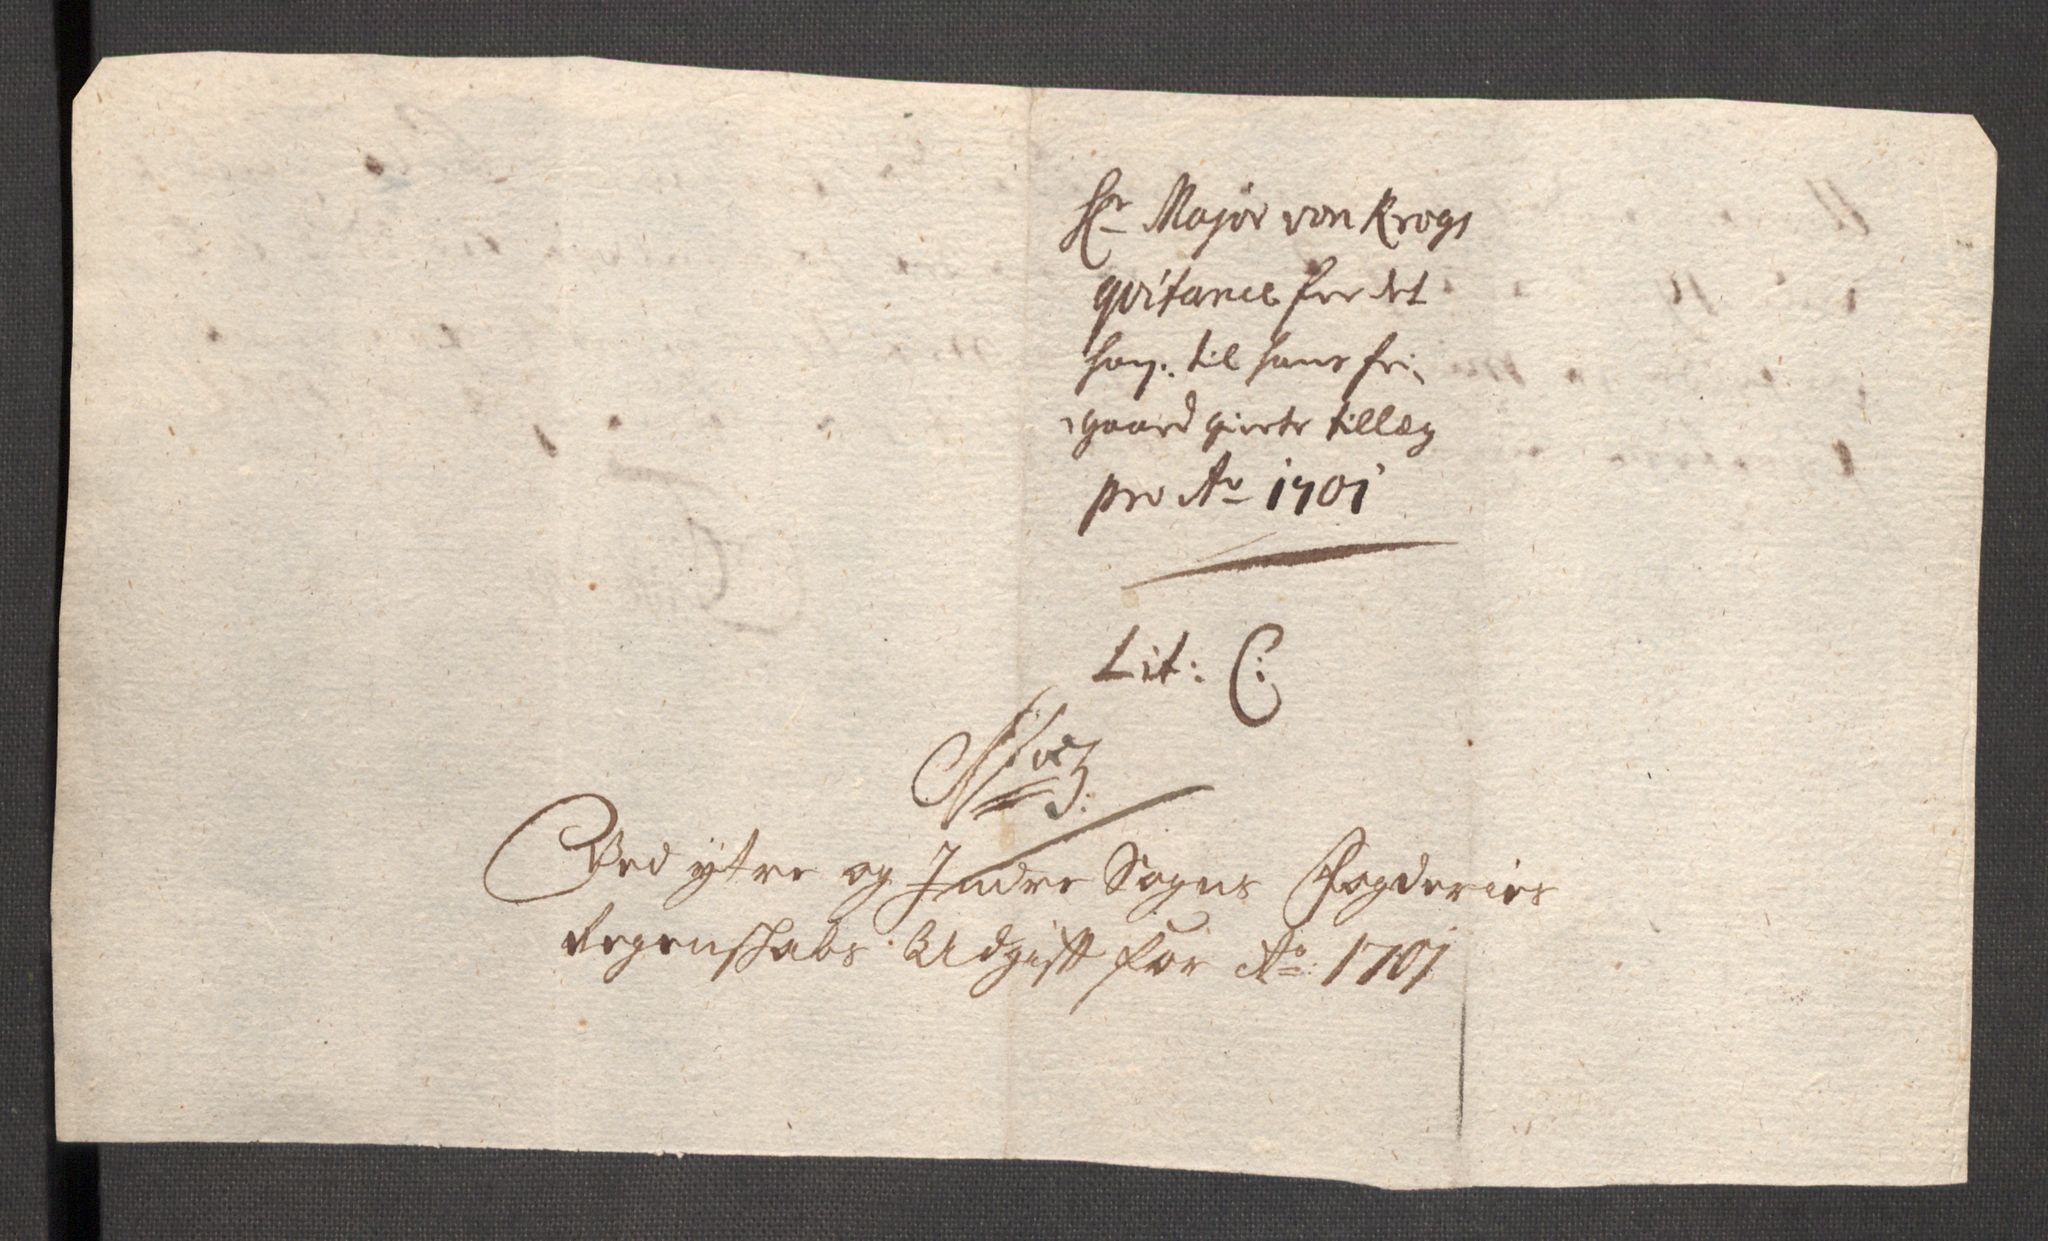 Hr Major von Krogs
qvitance for det
ham: til hans fri-
gaard giorte tillæg
pro Ao 1701
Lit: C:
Ved ytre og Indre Sogns Fogderies
Regenskabs Udgift for Ao: 1701